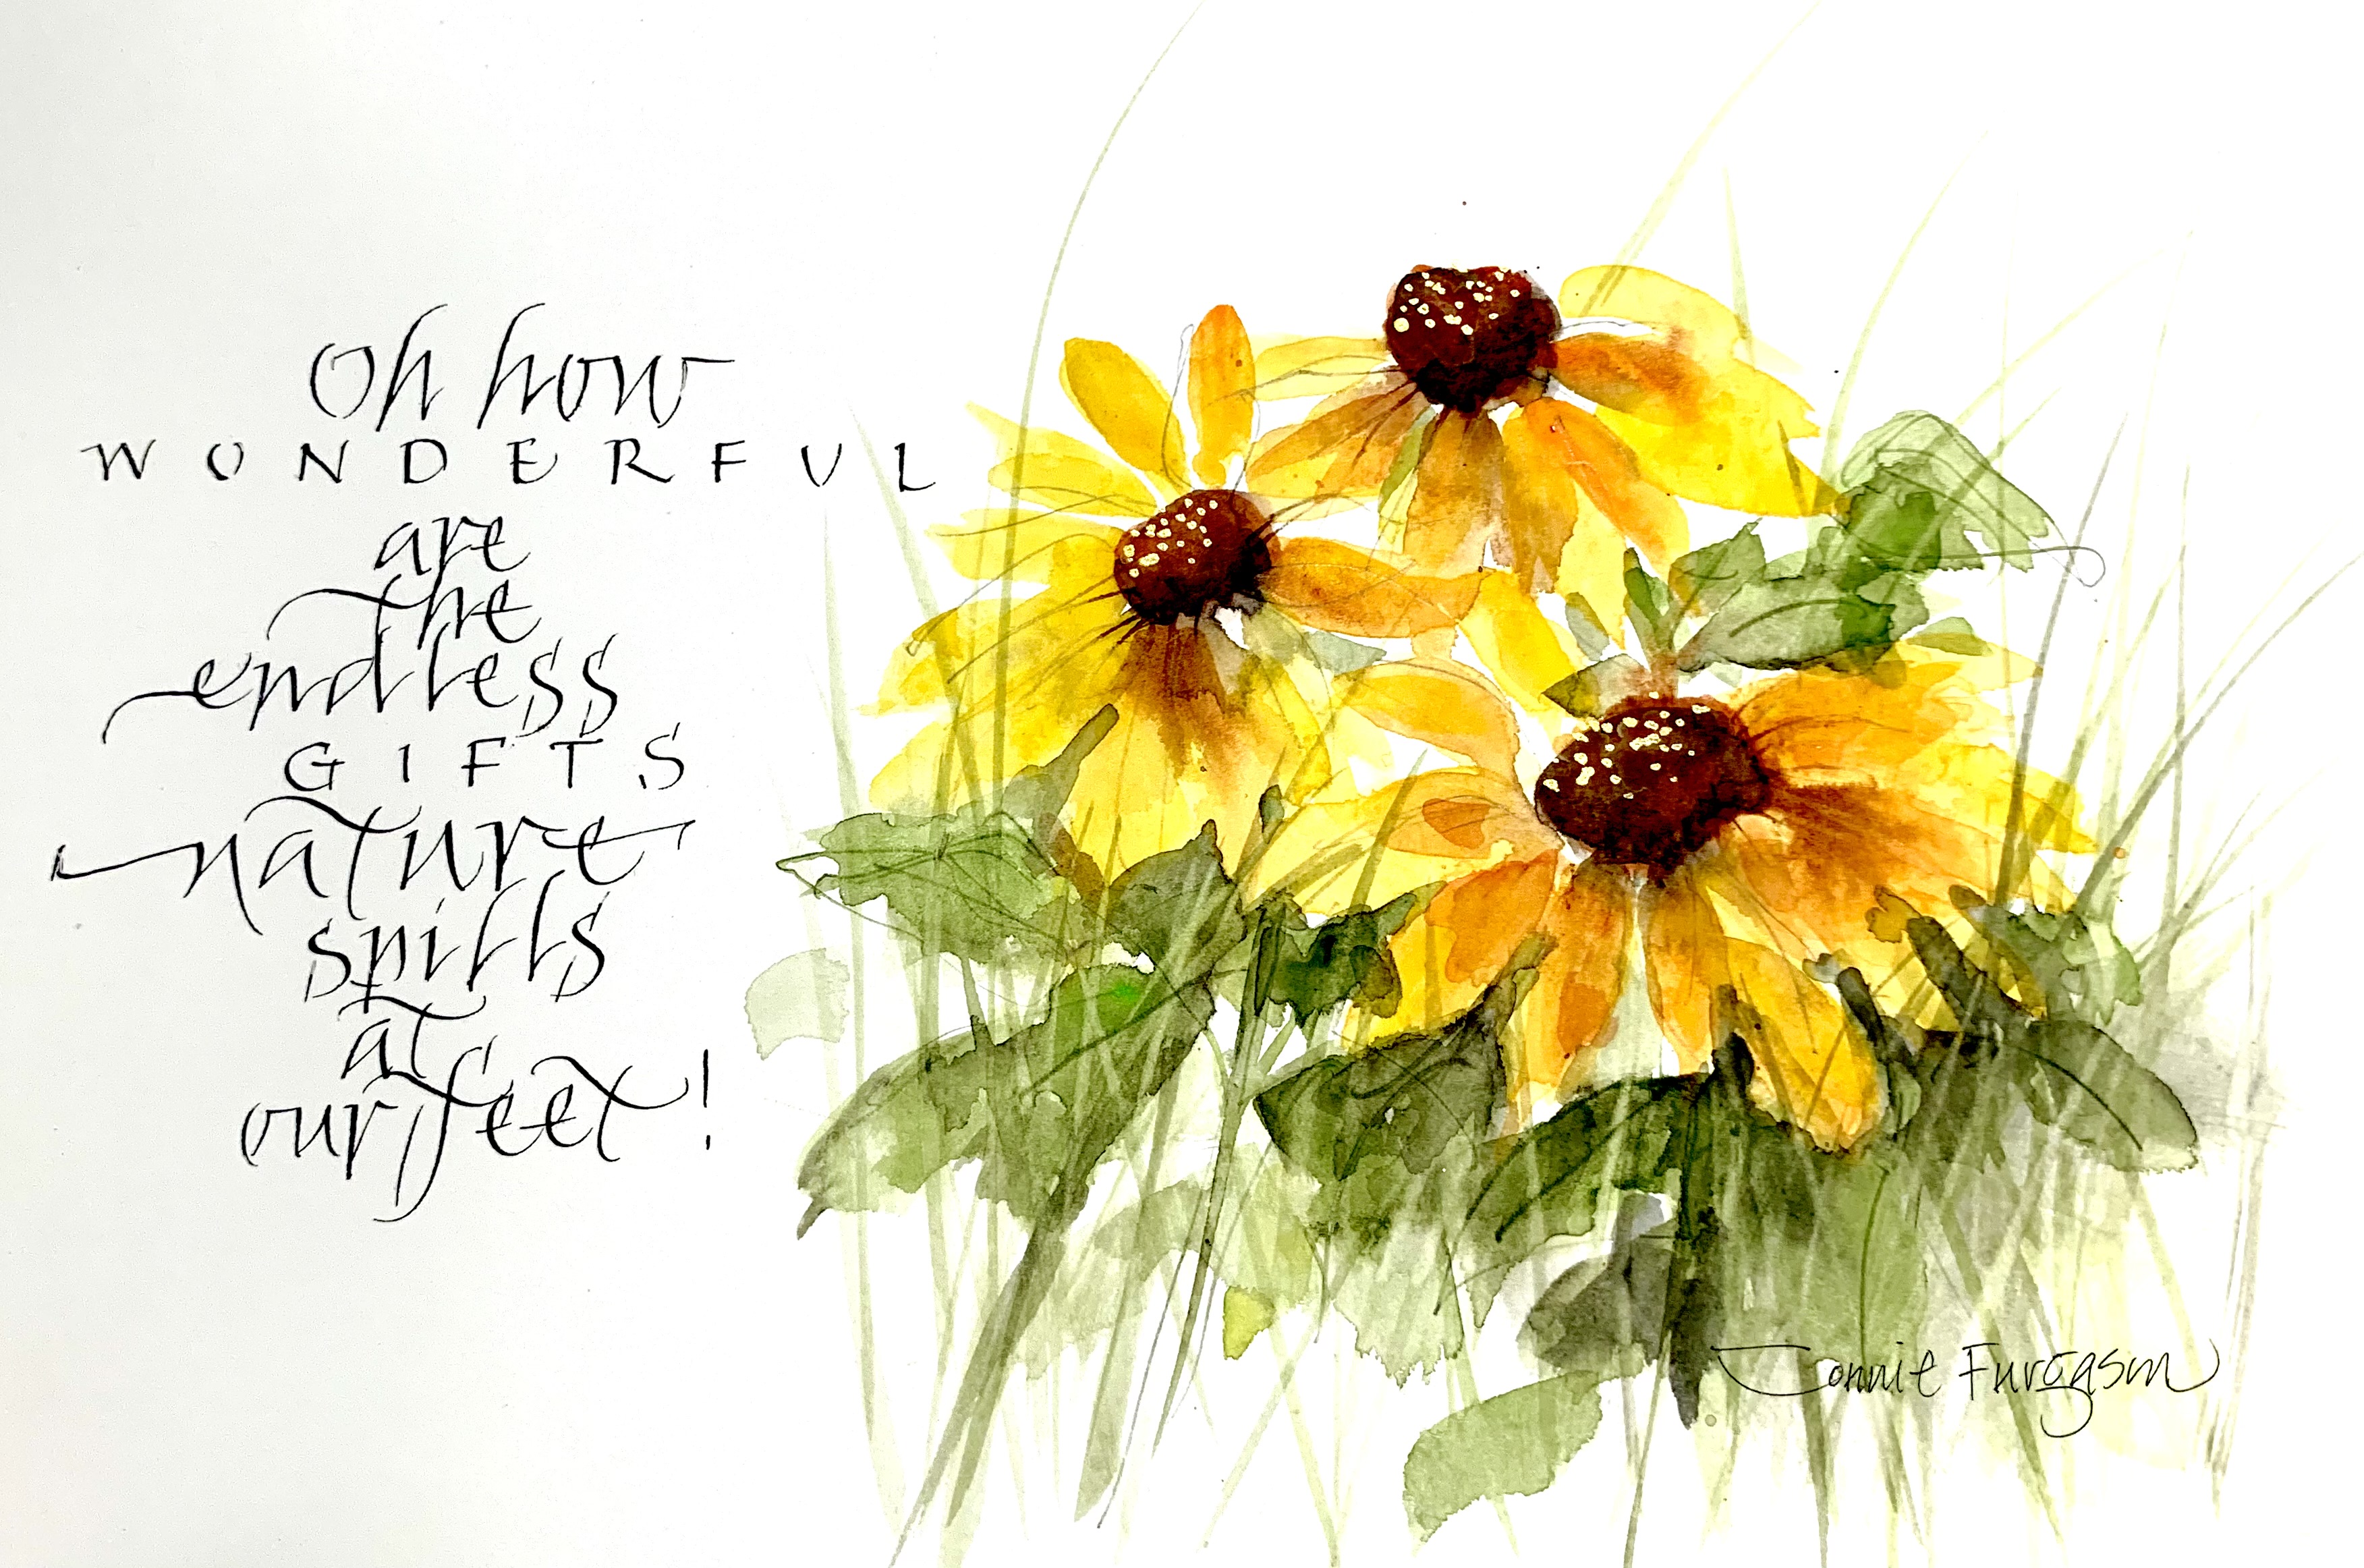 Oh how
WONDERFUL
are
the
endless
GIFTS
nature
spills
at
our feet!
Connie Furgason